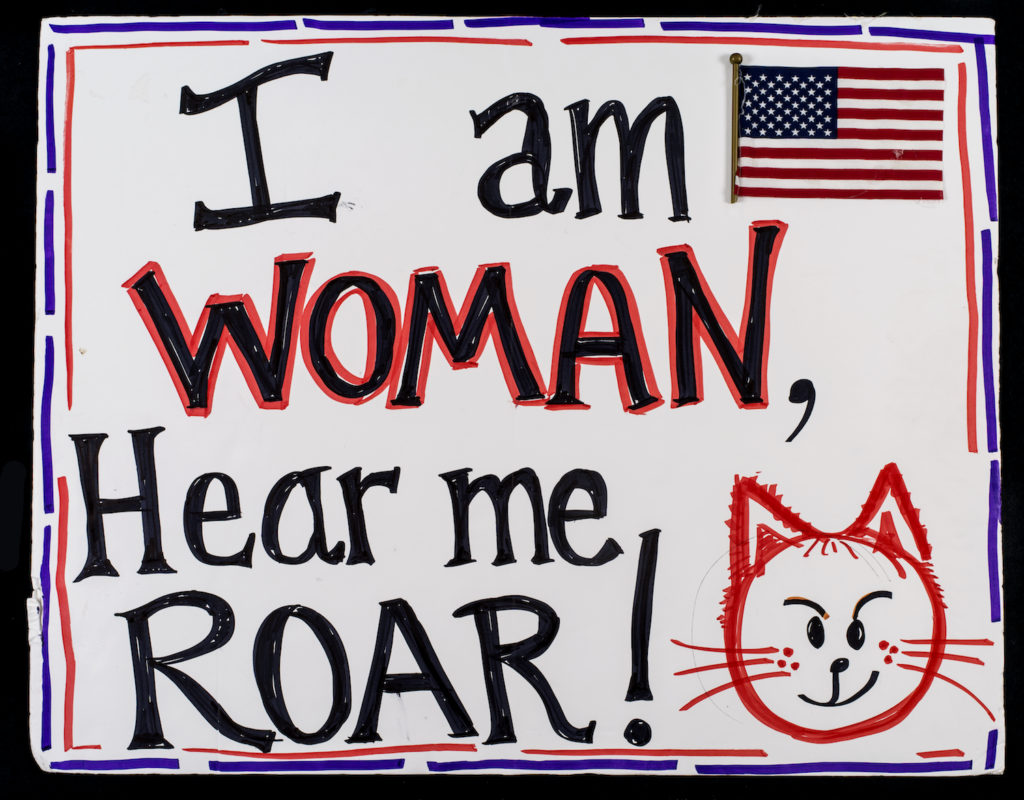 I am
WOMAN,
Hear me
ROAR!